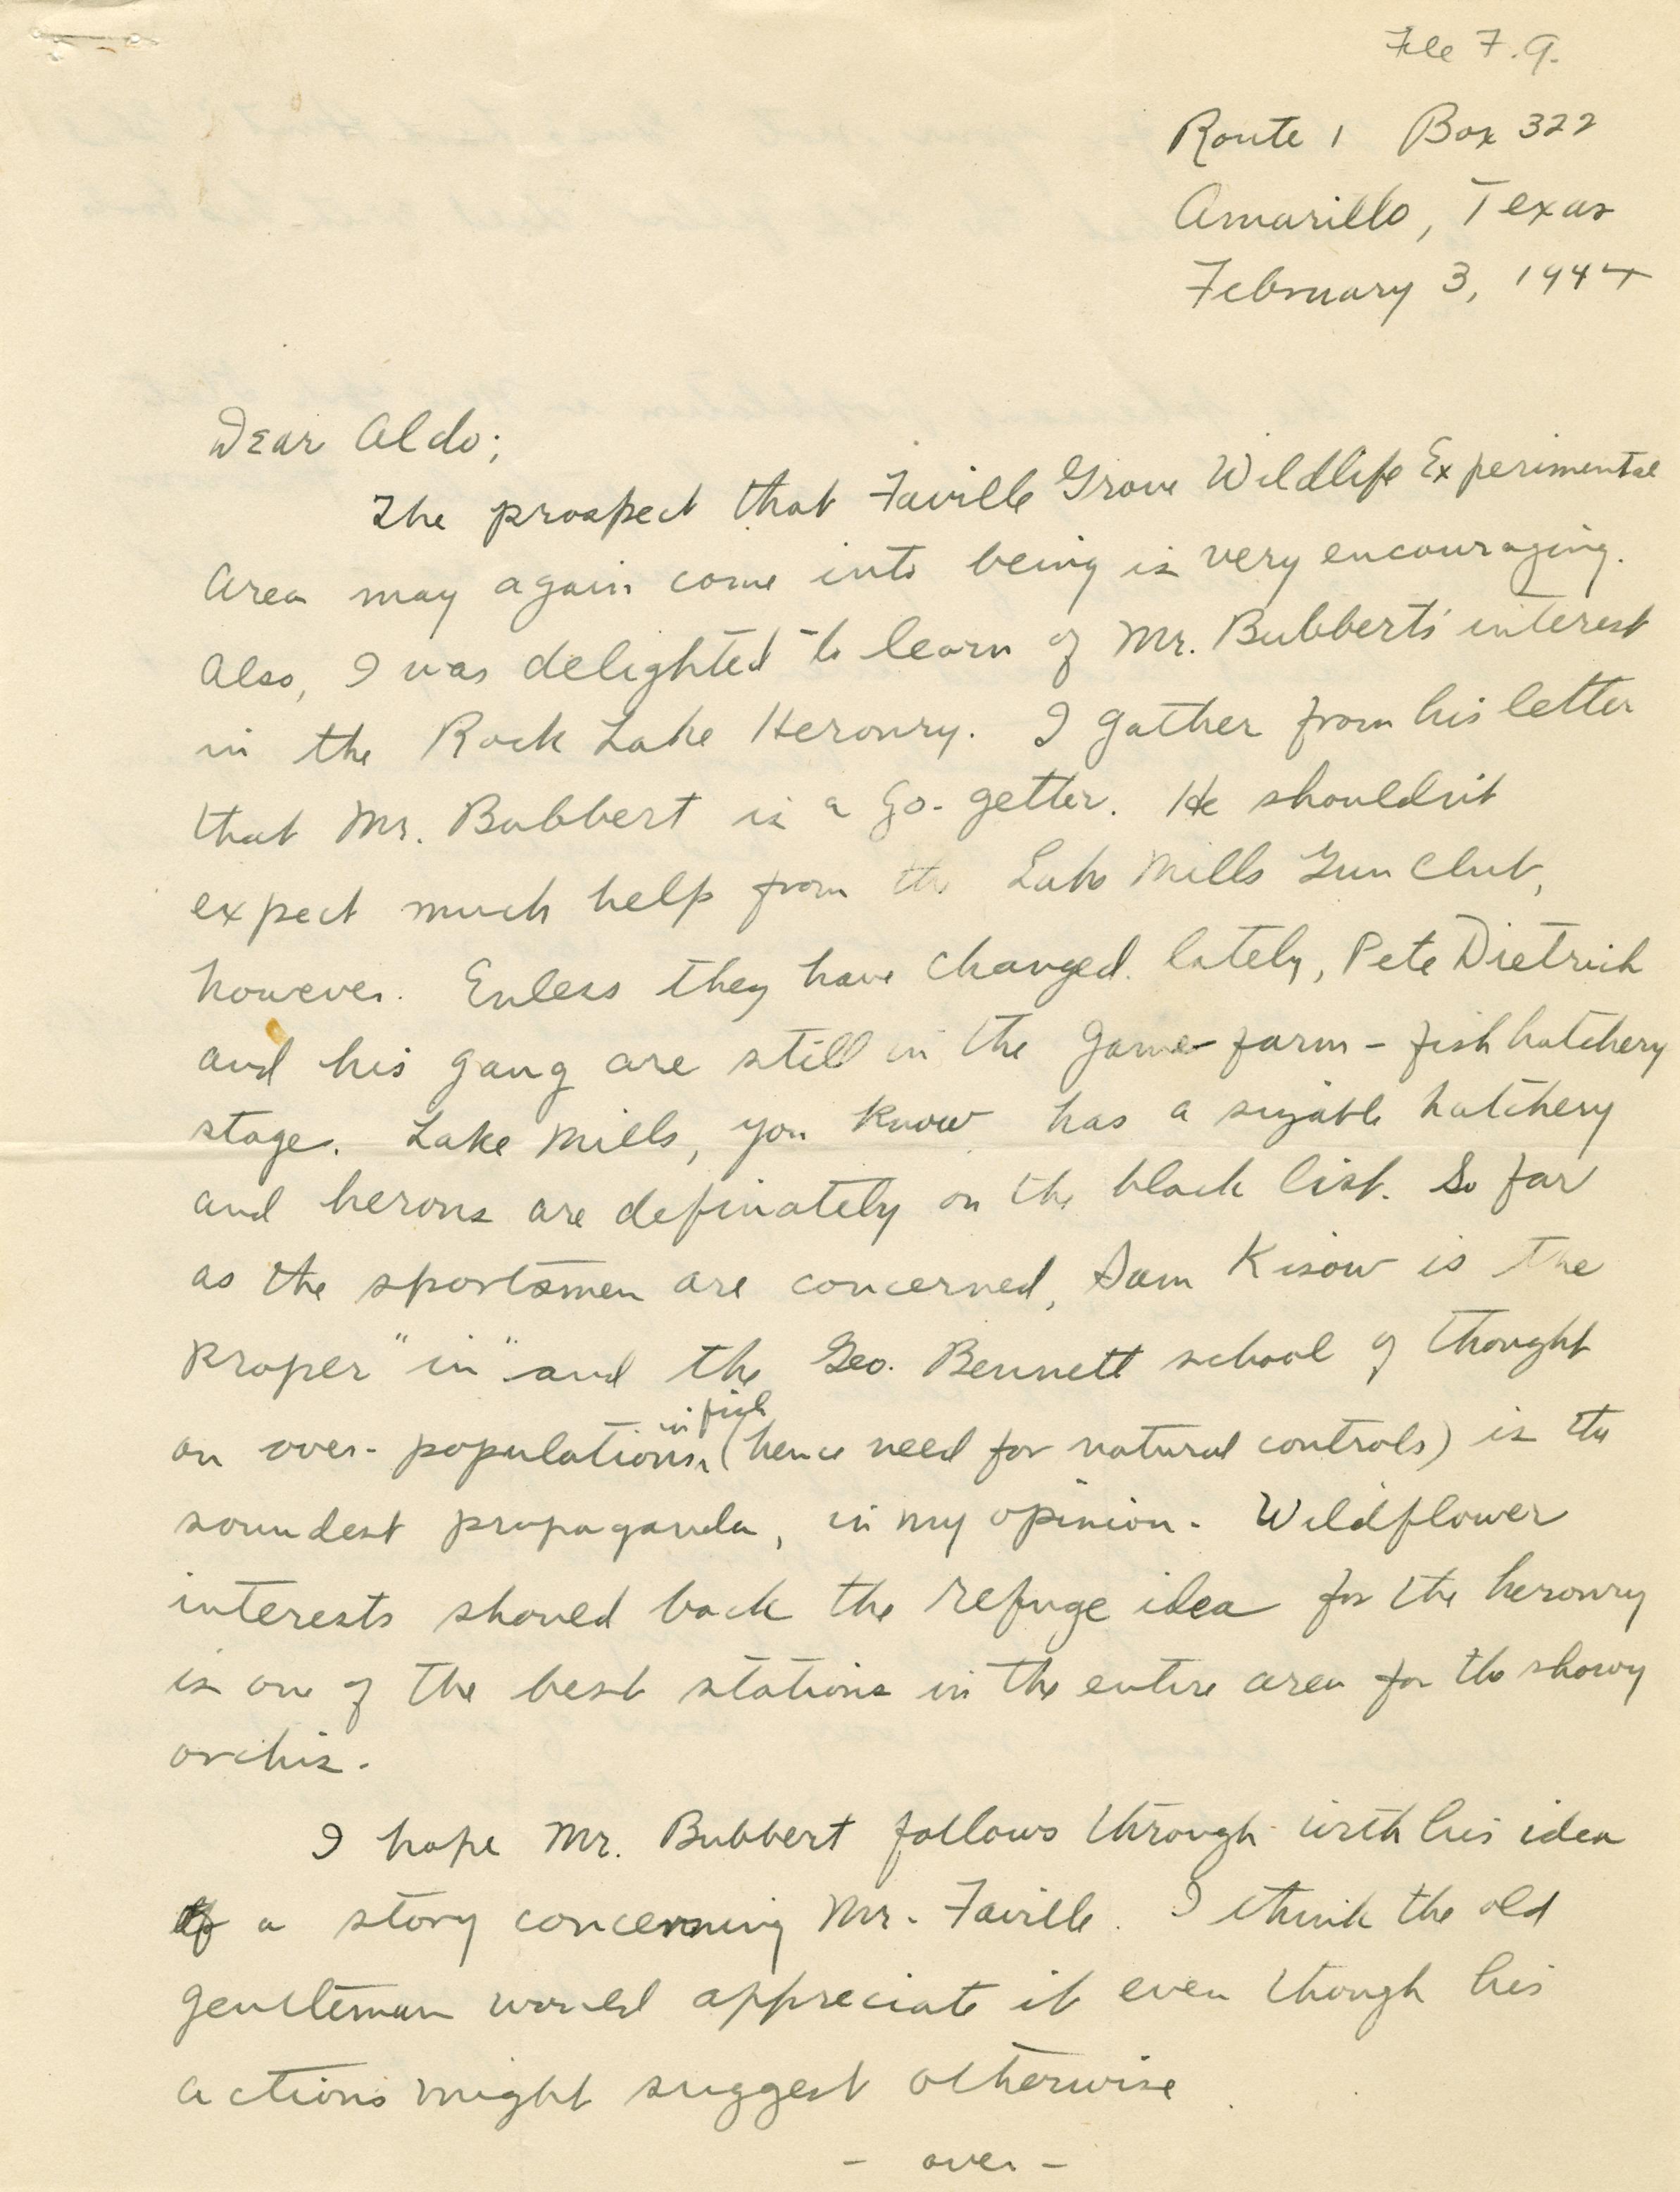 File F.G.
Route 1 Box 322
Amarillo, Texas
February 3, 1944
Dear Aldo;
The prospect that Faville Grove Wildlife Experimental
Area may again come into being is very encouraging.
Also, I was delighted to learn of Mr. Bubbert's interest
in the Rock Lake Heronry. I gather from his letter
that Mr. Bubbert is a go-getter. He shouldn't
expect much help from the Lake Mills Gun Club,
however. Unless they have changed lately, Pete Dietrich
and his gang are still in the game-farm - fish hatchery
stage. Lake Mills, you know has a sizable hatchery
and herons are definately on the black list. So far
as the sportsmen are concerned, Sam Kisow is the
proper "in" and the Geo. Bennett school of thought
in fish
on over-populations (hence need for natural controls) is the
soundest propaganda, in my opinion. Wildflower
interests should back the refuge idea for the heronry
is one of the best stations in the entire area for the showy
orchis.
I hope Mr. Bubbert follows through with his idea
of a story concerning Mr. Faville. I think the old
gentleman would appreciate it even though his
actions might suggest otherwise.
- over -